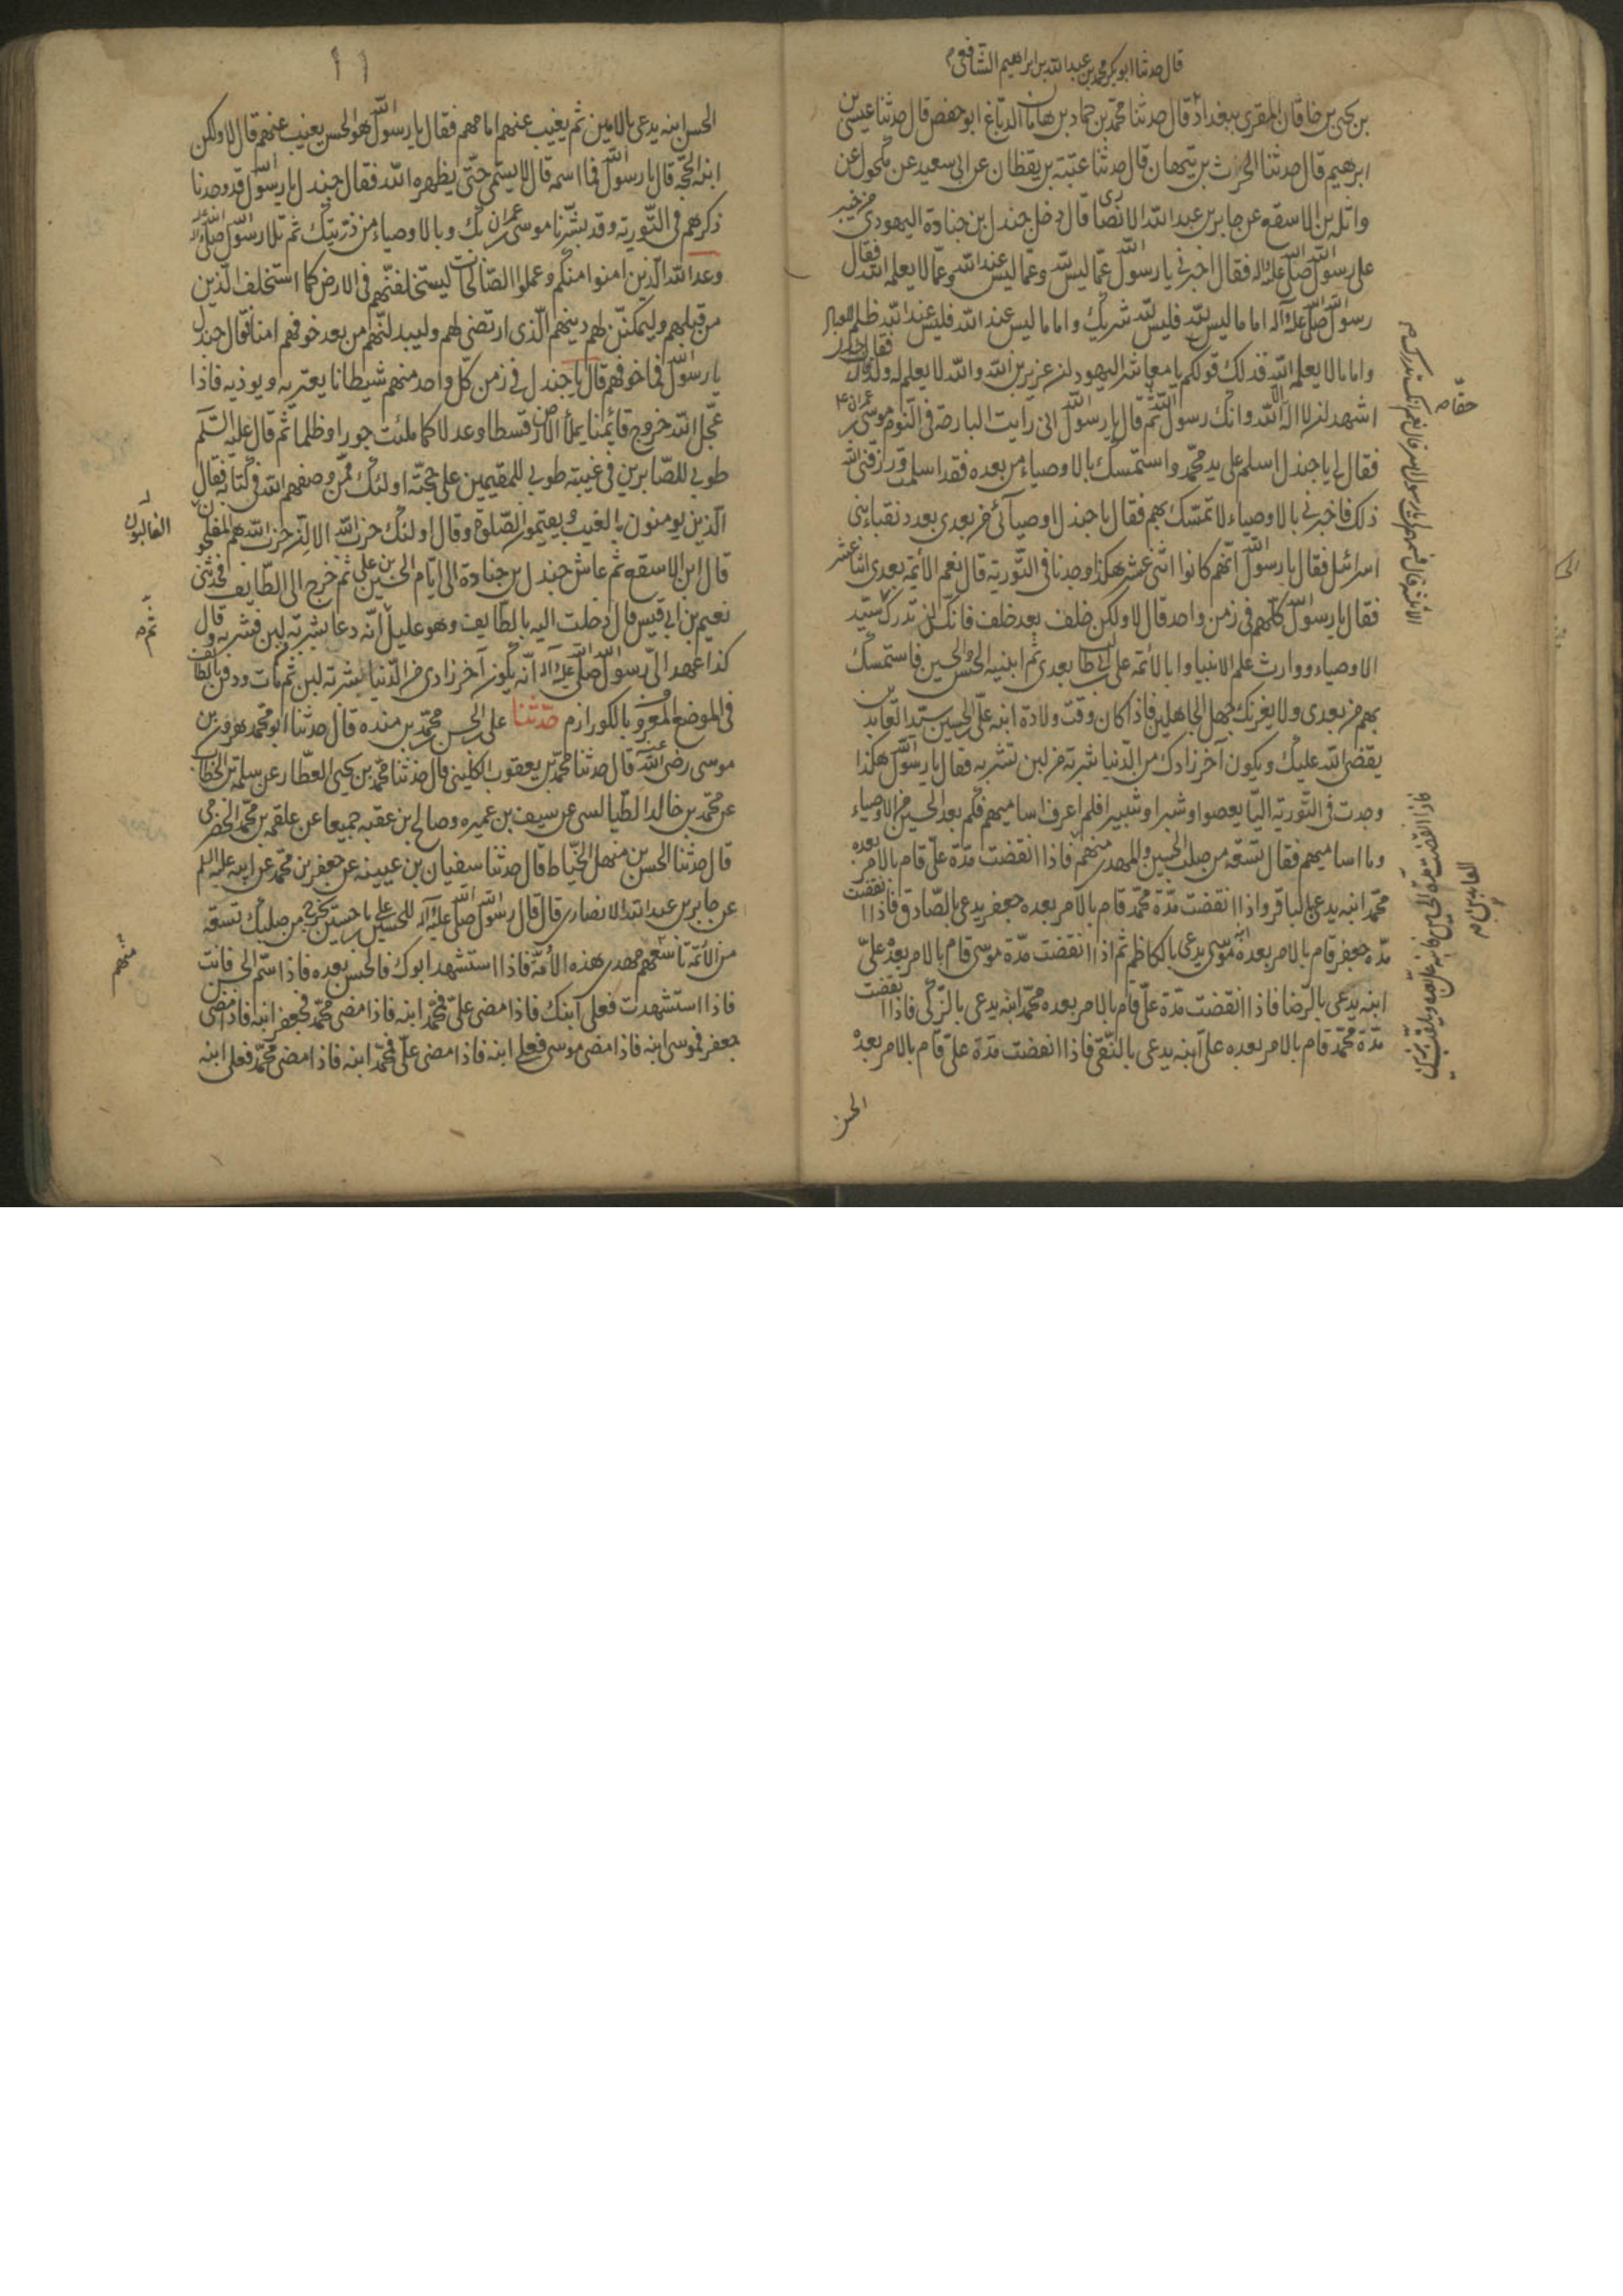 قال حدثنا ابو بكر محمد بن عبد الله بن ابراهيم الشافعي م
بن يحيى بن خاقان المقرى ببغداد قال حدثنا محمد بن حماد بن هامان الدباغ ابو جعفر قال حدثنا عيسى بن
ابرهيم قال حدثنا الحرث بن تيهان قال حدثنا عتبة بن يقظان عن ابى سعيد عن مكحول عن
واثلة بن الاسقع عن جابر بن عبد الله الانصارى قال دخل جندل بن جنادة اليهودى من خيبر
على رسول الله صلى الله عليه وآله فقال اخبرنى يا رسول الله عما ليس لله وعما ليس عند الله وعما لا يعلمه الله فقال
رسول الله صلى الله عليه وآله اما ما ليس لله فليس لله شريك واما ما ليس عند الله فليس عند الله ظلم للعباد
واما ما لا يعلمه الله فذلك قولكم يا معاشر اليهود ان عزير بن الله والله لا يعلم له ولدا فقال جندل
اشهد ان لا اله الا الله وانك رسول الله ثم قال يا رسول الله انى رايت البارحة فى النوم موسى بن عمران ع
فقال لى يا جندل اسلم على يد محمد واستمسك بالاوصياء من بعده فقد اسلمت ورزقنى الله
ذلك فاخبرنى بالاوصياء لاتمسك بهم فقال يا جندل اوصيآئى من بعدى بعدد نقباء بنى
اسرائيل فقال يا رسول الله انهم كانوا اثنى عشر هكذا وجدنا فى التورية قال نعم الأئمة بعدى اثنا عشر
فقال يا رسول الله كلهم فى زمن واحد قال لا ولكن خلف بعد خلف فانك لن تدرك سيد
الاوصياء ووارث علم الانبيا وابا الأئمة على بن ابى طالب بعدى ثم ابنيه الحسن والحسين فاستمسك
بهم من بعدى ولا يغرنك جهل الجاهلين فاذا كان وقت ولادة ابنه على بن الحسين سيد العابدين
يقضى الله عليك ويكون آخر زادك من الدنيا شربة من لبن تشربه فقال يا رسول الله هكذا
وجدت فى التورية اليا يعصوا وشبرا وشبيرا فلم اعرف اساميهم فكم بعد الحسين من الاوصياء
وما اساميهم فقال تسعة من صلب الحسين والمهدى منهم فاذا انقضت مدة على قام بالامر بعده
محمد ابنه يدعى بالباقر واذا انقضت مدة محمد قام بالامر بعده جعفر يدعى بالصادق فاذا انقضت
مدة جعفر قام بالامر بعده ابنه موسى يدعى بالكاظم ثم اذا انقضت مدة موسى قام بالامر بعده على
ابنه يدعى بالرضا فاذا انقضت مدة على قام بالامر بعده محمد ابنه يدعى بالزكى فاذا انقضت
مدة محمد قام بالامر بعده على ابنه يدعى بالنقى فاذا انقضت مدة على قام بالامر بعده
الحسن
حقا م
العابدين م
١١
الحسن ابنه يدعى بالامين ثم يغيب عنهم امامهم فقال يا رسول الله هو الحسن يغيب عنهم قال لا ولكن
ابنه الحجة قال يا رسول الله فما اسمه قال لا يسمى حتى يظهره الله فقال جندل يا رسول الله قد وجدنا
ذكرهم فى التورية وقد بشرنا موسى بن عمران بك وبالاوصياء من ذريتك ثم تلا رسول الله صلى الله عليه وآله
وعد الله الذين امنوا منكم وعملوا الصالحات ليستخلفنهم فى الارض كما استخلف الذين
من قبلهم وليمكنن لهم دينهم الذى ارتضى لهم وليبدلنهم من بعد خوفهم امنا فقال جندل
يا رسول الله فما خوفهم قال يا جندل فى زمن كل واحد منهم شيطانا يعتريه ويوذيه فاذا
عجل الله خروج قائمنا يملأ الارض قسطا وعدلا كما ملئت جورا وظلما ثم قال عليه السلم
طوبى للصابرين فى غيبته طوبى للمقيمين على محجته اولئك ممن وصفهم الله فى كتابه فقال
الذين يومنون بالغيب ويقيمون الصلوة وقال اولئك حزب الله الا ان حزب الله هم المفلحون
الغالبون
قال ابن الاسقع ثم عاش جندل بن جنادة الى ايام الحسين بن على ثم خرج الى الطايف فحدثنى
نعيم بن ابى قيس قال دخلت اليه بالطايف وهو عليل ثم انه دعا بشربة لبن فشربه وقال
ثم م
كذا عهد الى رسول الله صلى الله عليه وآله انه يكون آخر زادى من الدنيا شربة لبن ثم مات ودفن بالطايف
فى الموضع المعروف بالكورازم حدثنا على بن الحسن محمد بن منده قال حدثنا ابو محمد هرون بن
موسى رضى الله عنه قال حدثنا محمد بن يعقوب الكلينى قال حدثنا محمد بن يحيى العطار عن سلمة بن الخطاب
عن محمد بن خالد الطيالسى عن سيف بن عميره وصالح بن عقبه جميعا عن علقمه بن محمد الحضرمى
قال حدثنا الحسن بن منهل الخياط قال حدثنا سفيان بن عيينه عن جعفر بن محمد عن ابيه عليه السلم
عن جابر بن عبد الله الانصارى قال قال رسول الله صلى الله عليه وآله للحسين بن على يا حسين يخرج من صلبك تسعة
من الأئمة تاسعهم مهدى هذه الأمة فاذا استشهد ابوك فالحسن بعده فاذا سم الحسن فانت
منهم
فاذا استشهدت فعلى ابنك فاذا مضى على فمحمد ابنه فاذا مضى محمد فجعفر ابنه فاذا مضى
جعفر فموسى ابنه فاذا مضى موسى فعلى ابنه فاذا مضى على فمحمد ابنه فاذا مضى محمد فعلى ابنه